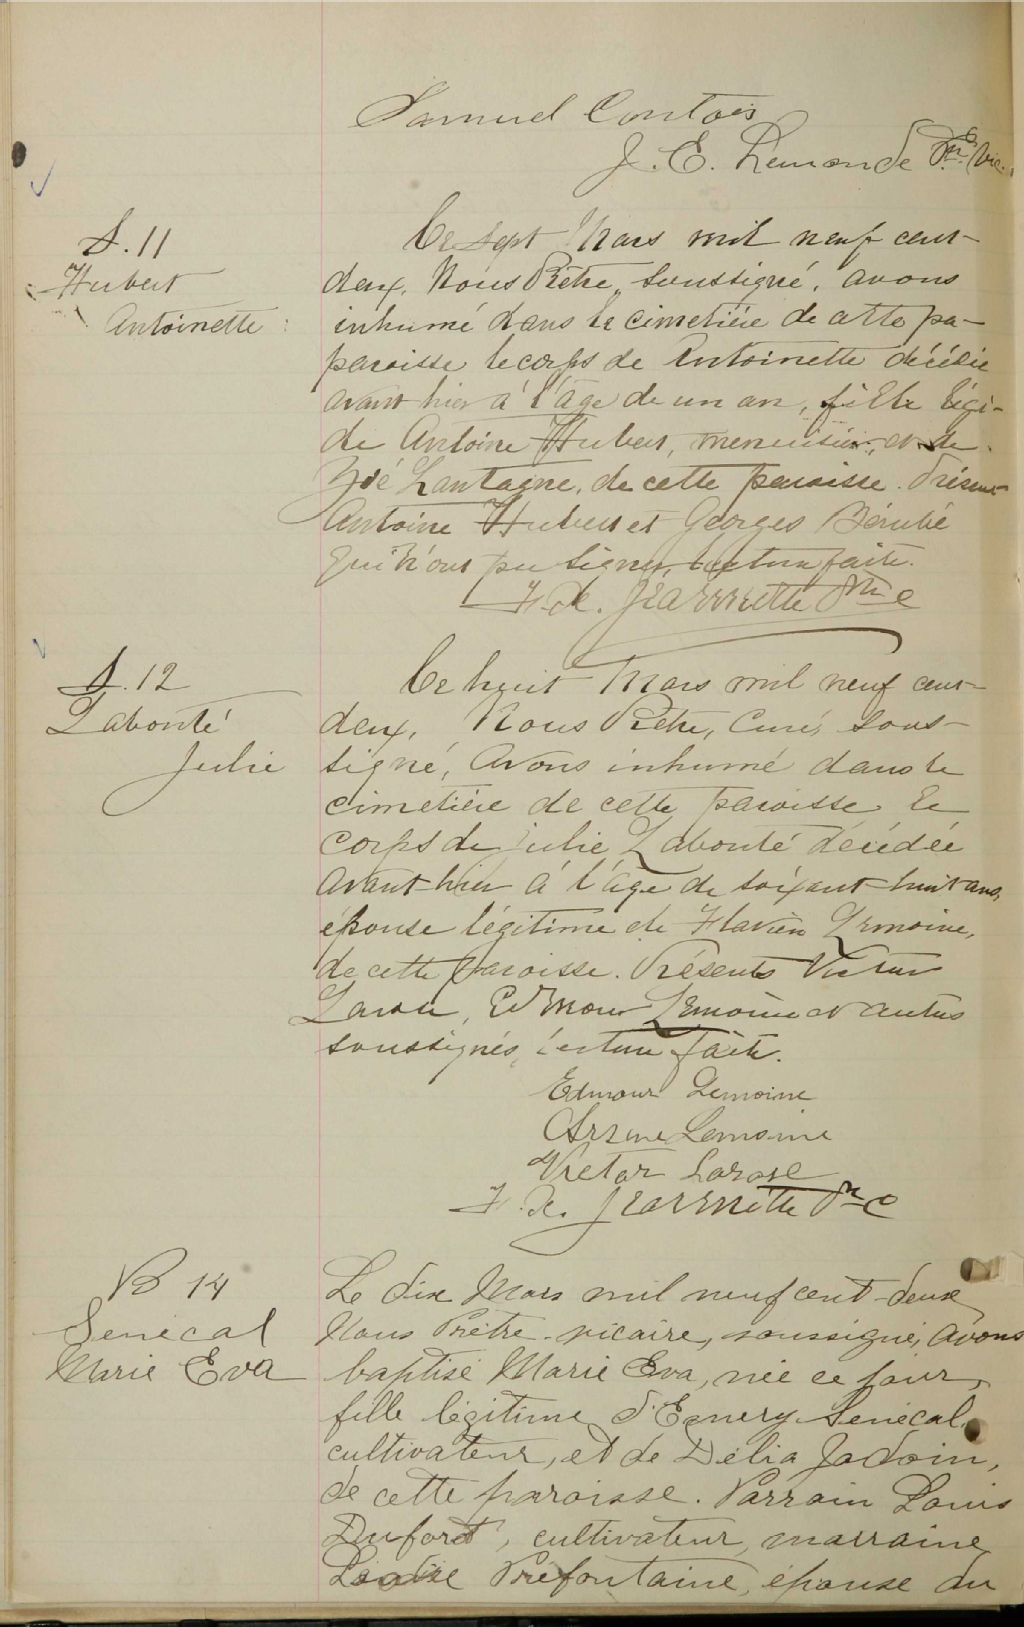 Samuel Contois
J. E. Lemonde Ptre Vic.
S. 11
Hubert
Antoinette
Ce sept Mars mil neuf cent
deux, Nous Prêtre, soussigné, avons
inhumé dans le cimetière de cette pa-
paroisse le corps de Antoinette décédée
avant hier à l'âge de un an, fille légi-
de Antoine Hubert, menuisier, et de
Zoé Lantagne, de cette paroisse. Présents
Antoine Hubert et Georges Bérubé
qui n'ont pu signer, lecture faite.
F. X. Jeannette Ptre
S. 12
Labonté
Julie
Ce huit Mars mil neuf cent
deux, Nous Prêtre, Curé, sous-
signé, avons inhumé dans le
cimetière de cette paroisse le
corps de Julie Labonté décédée
avant hier à l'âge de soixant-huit ans,
épouse légitime de Flavien Lemoine,
de cette paroisse. Présents Victor
Larose, Edmour Lemoine et autres
soussignés, lecture faite.
Edmour Lemoine
Arsene Lemoine
Victor Larose
F. X. Jeannette Ptre
B 14
Senécal
Marie Eva
Le dix Mars mil neuf cent-deux
Nous Prêtre-vicaire, soussigné, avons
baptisé Marie Eva, née ce jour,
fille légitime d'Emery Senécal,
cultivateur, et de Délia Jodoin,
de cette paroisse. Parrain Louis
Dufort, cultivateur, marraine
Préfontaine, épouse du